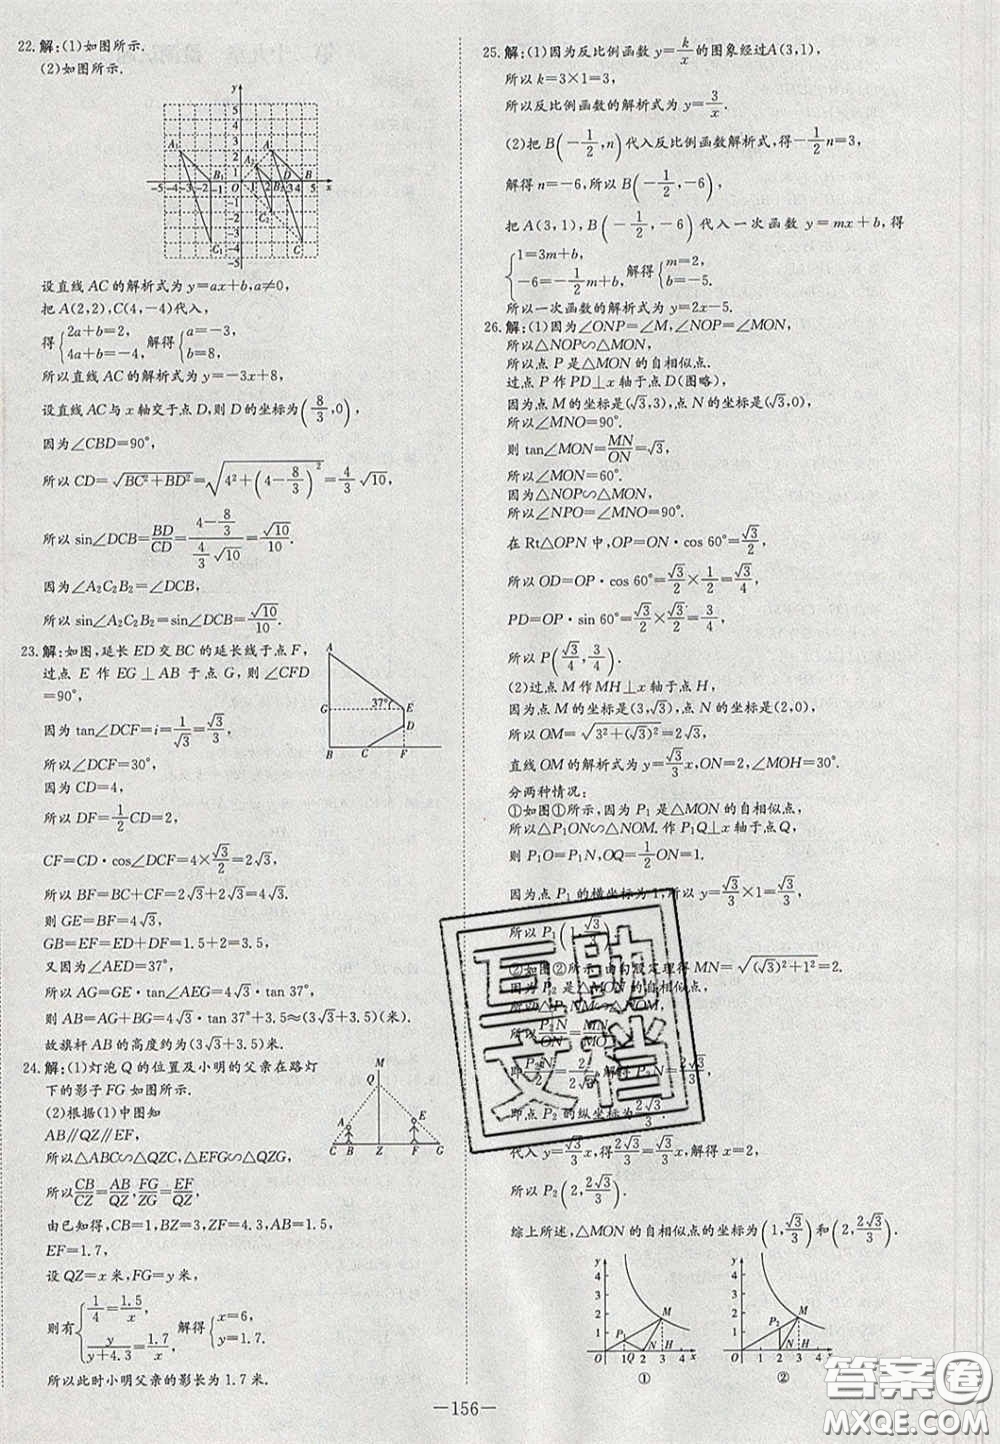 22.解:(1)如图所示.
(2)如图所示.
设直线AC的解析式为y=ax+b,a≠0,
把A(2,2),C(4,-4)代入,
得{2a+b=2, 4a+b=-4, 解得{a=-3, b=8,
所以直线AC的解析式为y=-3x+8,
设直线AC与x轴交于点D,则D的坐标为(8/3,0),
因为∠CBD=90°,
所以CD=√(BC²+BD²)=√(4²+(4-8/3)²)=4/3√10,
所以sin∠DCB=BD/CD=(4-8/3)/(4/3√10)=√10/10.
因为∠A₂C₂B₂=∠DCB,
所以sin∠A₂C₂B₂=sin∠DCB=√10/10.
23.解:如图,延长ED交BC的延长线于点F,
过点E作EG⊥AB于点G,则∠CFD
=90°,
因为tan∠DCF=i=1/√3=√3/3,
所以∠DCF=30°,
因为CD=4,
所以DF=1/2CD=2,
CF=CD·cos∠DCF=4×√3/2=2√3,
所以BF=BC+CF=2√3+2√3=4√3.
则GE=BF=4√3,
GB=EF=ED+DF=1.5+2=3.5,
又因为∠AED=37°,
所以AG=GE·tan∠AEG=4√3·tan 37°,
则AB=AG+BG=4√3·tan 37°+3.5≈(3√3+3.5)(米).
故旗杆AB的高度约为(3√3+3.5)米.
24.解:(1)灯泡Q的位置及小明的父亲在路灯
下的影子FG如图所示.
(2)根据(1)中图知
AB∥QZ∥EF,
所以△ABC∽△QZC,△EFG∽△QZG,
所以CB/CZ=AB/QZ,FG/ZG=EF/QZ,
由已知得,CB=1,BZ=3,ZF=4.3,AB=1.5,
EF=1.7,
设QZ=x米,FG=y米,
则有{1/4=1.5/x, y/(y+4.3)=1.7/x, 解得{x=6, y=1.7.
所以此时小明父亲的影长为1.7米.
25.解:(1)因为反比例函数y=k/x的图象经过A(3,1),
所以k=3×1=3,
所以反比例函数的解析式为y=3/x.
(2)把B(-1/2,n)代入反比例函数解析式,得-1/2n=3,
解得n=-6,所以B(-1/2,-6),
把A(3,1),B(-1/2,-6)代入一次函数y=mx+b,得
{1=3m+b, -6=-1/2m+b, 解得{m=2, b=-5.
所以一次函数的解析式为y=2x-5.
26.解:(1)因为∠ONP=∠M,∠NOP=∠MON,
所以△NOP∽△MON,
所以点P是△MON的自相似点.
过点P作PD⊥x轴于点D(图略),
因为点M的坐标是(√3,3),点N的坐标是(√3,0),
所以∠MNO=90°.
则tan∠MON=MN/ON=√3,
所以∠MON=60°.
因为△NOP∽△MON,
所以∠NPO=∠MNO=90°.
在Rt△OPN中,OP=ON·cos 60°=√3/2,
所以OD=OP·cos 60°=√3/2×1/2=√3/4,
PD=OP·sin 60°=√3/2×√3/2=3/4,
所以P(√3/4,3/4).
(2)过点M作MH⊥x轴于点H,
因为点M的坐标是(3,√3),点N的坐标是(2,0),
所以OM=√(3²+(√3)²)=2√3,
直线OM的解析式为y=√3/3x,ON=2,∠MOH=30°.
分两种情况:
①如图①所示,因为P₁是△MON的自相似点,
所以△P₁ON∽△NOM.作P₁Q⊥x轴于点Q,
则P₁O=P₁N,OQ=1/2ON=1.
因为点P₁的横坐标为1,所以y=√3/3×1=√3/3,
所以P₁(1,√3/3).
②如图②所示,由勾股定理得MN=√((√3)²+1²)=2.
因为P₂是△MON的自相似点,
所以△P₂NM∽△NOM,
所以P₂N/ON=MN/MO,
即P₂N/2=2/2√3,解得P₂N=2√3/3,
即点P₂的纵坐标为2√3/3.
代入y=√3/3x,得2√3/3=√3/3x,解得x=2,
所以P₂(2,2√3/3).
综上所述,△MON的自相似点的坐标为(1,√3/3)和(2,2√3/3).
① ②
—156—
互助文档
答案圈
MXQE.COM